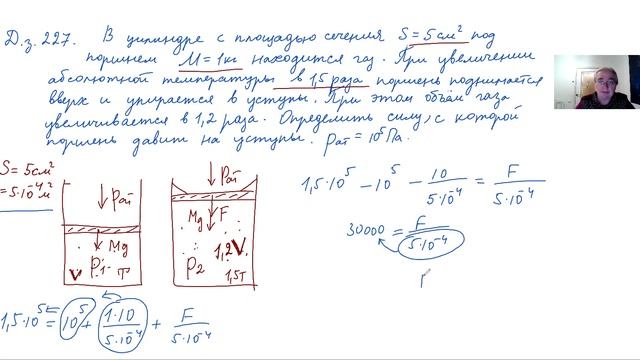 Д.з. 227. В цилиндре с площадью сечения S = 5 см² под
поршнем M = 1 кг находится газ. При увеличении
абсолютной температуры в 1,5 раза поршень поднимается
вверх и упирается в уступы. При этом объём газа
увеличивается в 1,2 раза. Определить силу, с которой
поршень давит на уступы. Pат = 10⁵ Па.
S = 5 см²
= 5·10⁻⁴ м²
Pат
Mg
V P₁ T
Pат
Mg F
1,2V
P₂ 1,5T
1,5·10⁵ − 10⁵ − 10/5·10⁻⁴ = F/5·10⁻⁴
30000 = F/5·10⁻⁴
1,5·10⁵ = 10⁵ + 1·10/5·10⁻⁴ + F/5·10⁻⁴